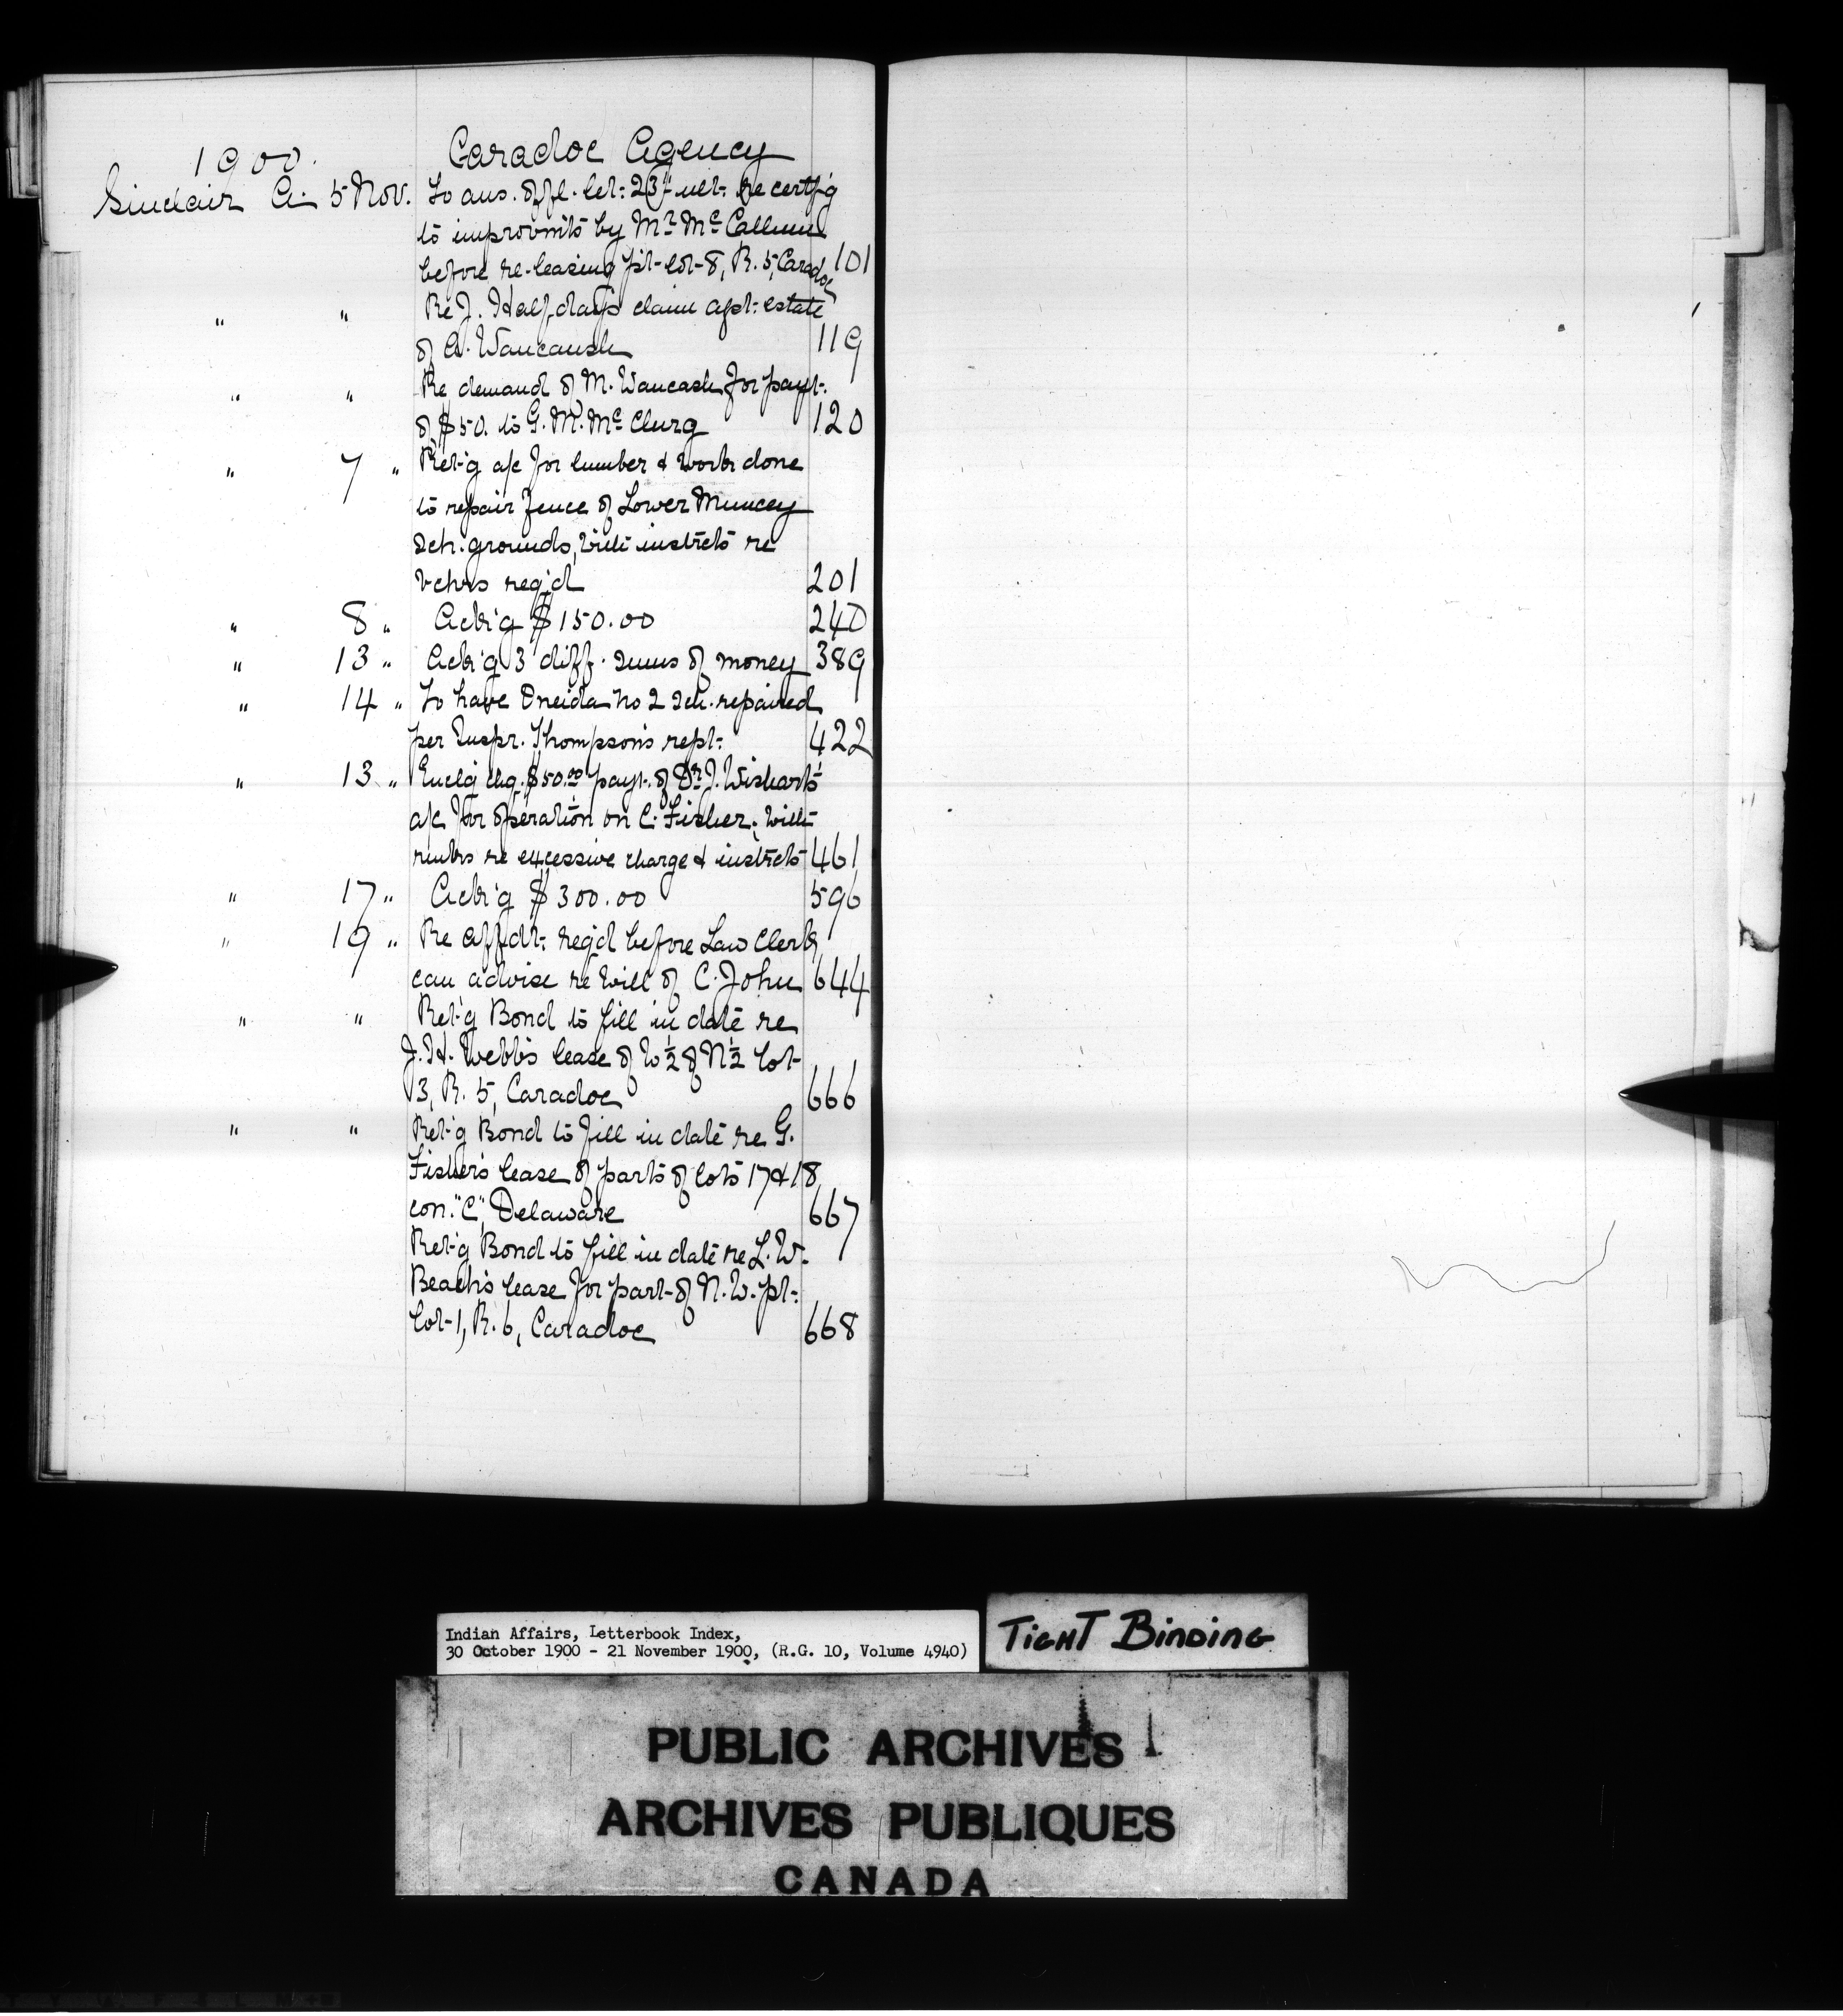 1900. Caradoc Agency
Sinclair A. 5 Nov. To ans. offl. let. 23rd ult. re certf'g
to improvmts by Mr. McCallum
before re-leasing pt. lot 8, R. 5, Caradoc 101
" " Re J. Halfday's claim agst. estate
of A. Waucaush 119
" " Re demand of M. Waucash for payt.
of $50. to G. M. McClurg 120
" 7 " Ret'g a/c for lumber & work done
to repair fence of Lower Muncey
sch. grounds, with instrcts re
vchrs req'd 201
" 8 " Ack'g $150.00 240
" 13 " Ack'g 3 diff. sums of money 389
" 14 " To have Oneida No 2 sch. repaired
per Inspr. Thompson's rept. 422
" 13 " Enclg chq. $50.00 payt. of Dr. J. Wishart's
a/c for operation on C. Fisher, with
rmks re excessive charge & instrcts 461
" 17 " Ack'g $300.00 596
" 19 " Re affdt. req'd before Law Clerk
can advise re will of C. John 644
" " Ret'g Bond to fill in date re
J. H. Webb's lease of W½ of N½ lot
3, R. 5, Caradoc 666
" " Ret'g Bond to fill in date re G.
Fisher's lease of parts of lots 17 & 18,
con. "C", Delaware 667
Ret'g Bond to fill in date re L. W.
Beach's lease for part of N. W. pt.
lot 1, R. 6, Caradoc 668
Indian Affairs, Letterbook Index,
30 October 1900 - 21 November 1900, (R.G. 10, Volume 4940)
TIGHT BINDING
PUBLIC ARCHIVES
ARCHIVES PUBLIQUES
CANADA